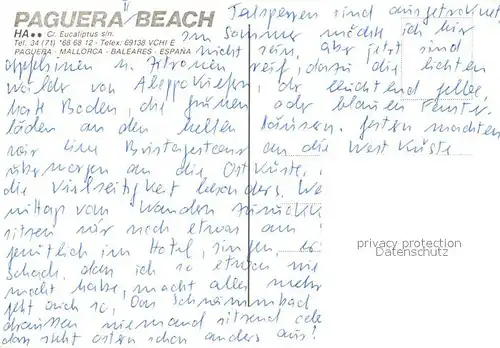 PAGUERA BEACH
HA.. Cr. Eucaliptus s/n.
Tel. 34 (71) *68 68 12 - Telex: 69138 VCHI E
PAGUERA - MALLORCA - BALEARES - ESPAÑA
II
Talsperren sind ausgetrocknet
im Sommer möchte ich hier
nicht sein, aber jetzt sind
Apfelsinen u. Zitronen reif, dazu die lichten
Wälder von Aleppokiefern, der leuchtend gelbe,
harte Boden, die grünen oder blauen Fenster-
läden an den hellen Häusern. Gestern machten
wir eine an die Westküste
übermorgen an die Ostküste,
die Vielseitigkeit besonders. We
mittag vom Wandern zurückk
sitzen wir noch etwas am
gemütlich im Hotel, singen,
Schach, den ich so etwas nie
macht habe, macht alles mehr
geht auch so, Das Schwimmbad
draussen niemand sitzend
das sieht Ostern schon anders aus!
privacy protection
Datenschutz